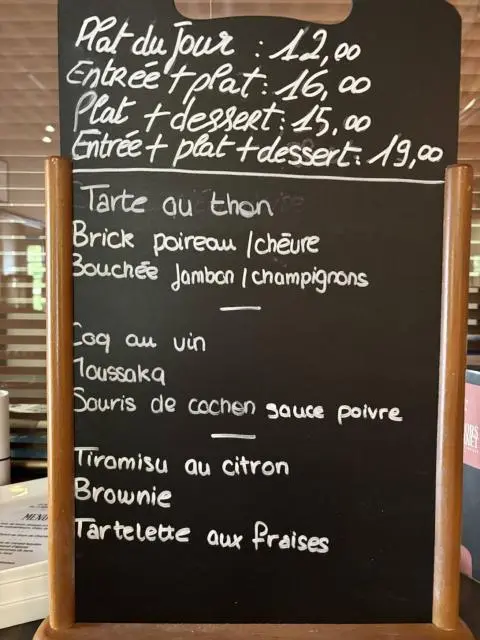 Plat du Jour : 12,00
Entrée + plat : 16,00
Plat + dessert : 15,00
Entrée + plat + dessert : 19,00
Tarte au thon
Brick poireau / chèvre
Bouchée Jambon / champignons
Coq au vin
Moussaka
Souris de cochon sauce poivre
Tiramisu au citron
Brownie
Tartelette aux fraises
MENU